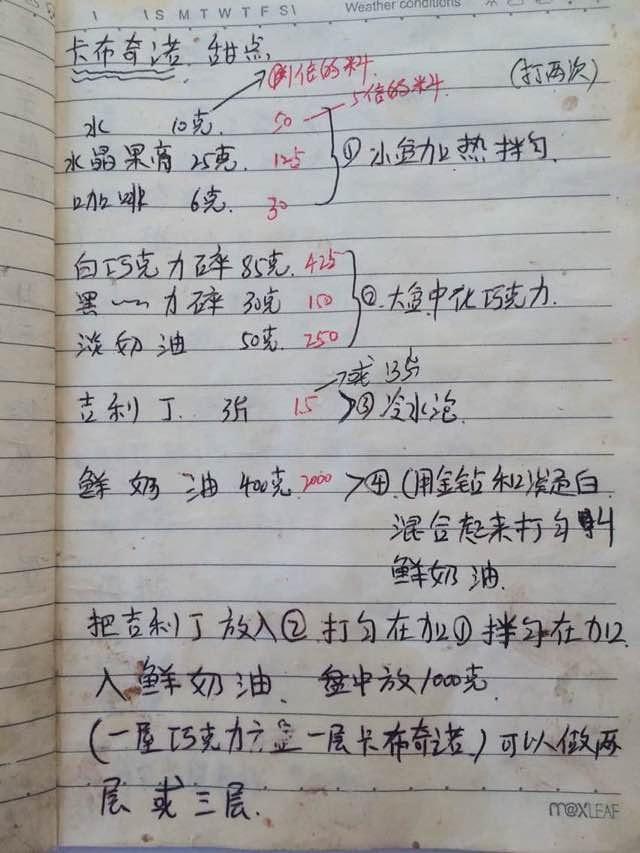 S M T W T F S
Weather conditions
卡布奇诺 甜点
倍的料
5倍的料
(打两次)
水 10克. 50
水晶果膏 25克. 125
咖啡 6克. 30
① 小盆加热拌匀.
白巧克力碎 85克. 425
黑 〰 力碎 30克 150
淡奶油 50克. 250
② 大盘中化巧克力.
→或 13片
吉利丁. 3片 15 >③ 冷水泡.
鲜奶油 400克 2000 >④.(用金钻和淡蛋白
混合起来打匀
鲜奶油.
把吉利丁放入② 打匀在加① 拌匀在加
入鲜奶油. 盘中放1000克.
(一层巧克力 一层卡布奇诺.)可以做两
层或三层.
m@xLEAF